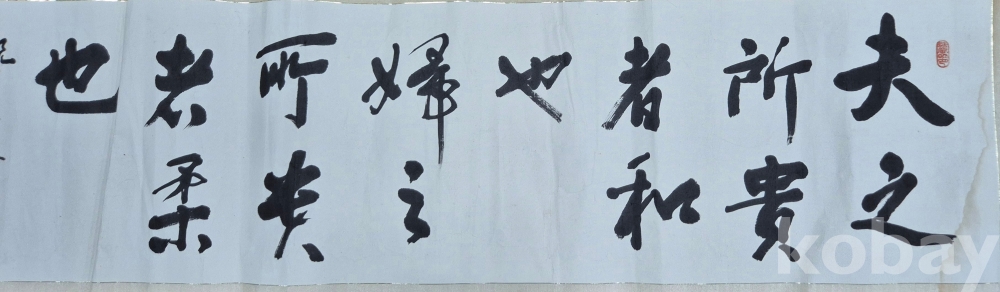 夫之
所貴
者和
也
婦之
所貴
者柔
也
kobay